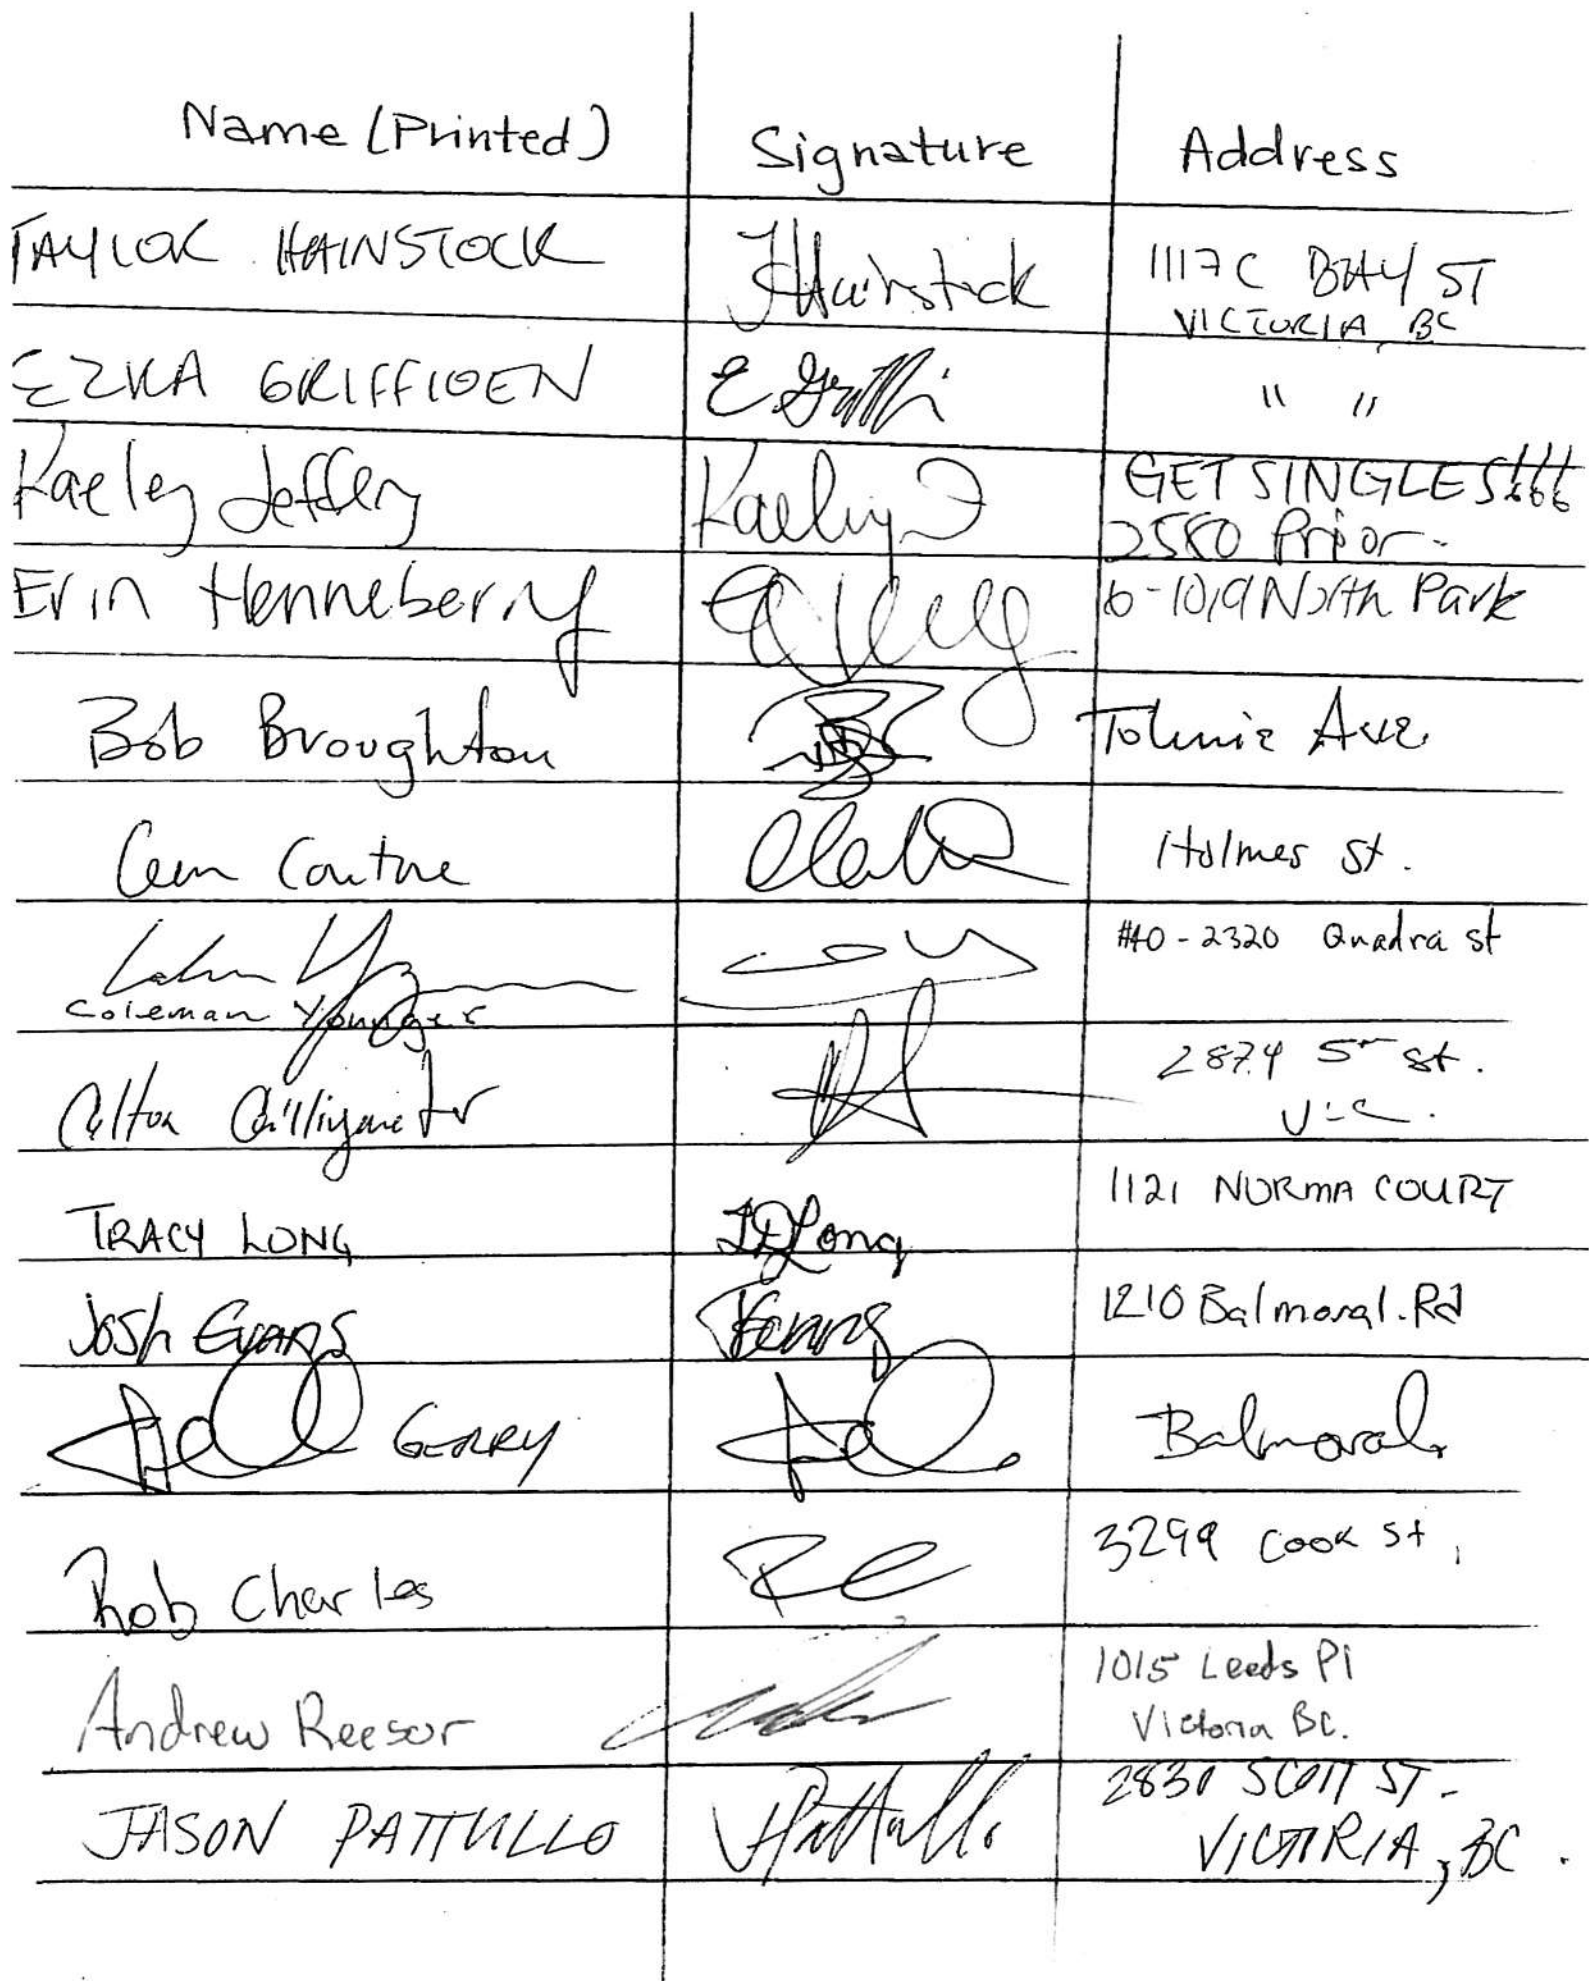 Name (Printed) Signature Address
TAYLOR HAINSTOCK THainstock 1117C BAY ST
VICTORIA, BC
EZRA GRIFFIOEN E Griffi " "
Kaeley Jeffery Kaeley J GET SINGLES!!!
2580 Prior-
Erin Henneberry 6-1019 North Park
Bob Broughton Tolmie Ave.
Cam Couture Holmes St.
#40-2320 Quadra st
Coleman Younger
Colton 2874 5th st.
Vic.
TRACY LONG TLong 1121 NORMA COURT
Josh Evans JEvans 1210 Balmoral. Rd
GERRY Balmoral
Rob Charles RC 3299 Cook St,
Andrew Reesor 1015 Leeds Pl
Victoria BC.
JASON PATTULLO JPattullo 2830 SCOTT ST-
VICTORIA, BC.